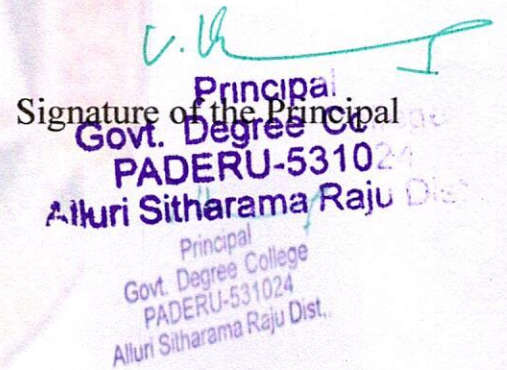 Principal
Signature of the Principal
Govt. Degree Co
PADERU-531024
Alluri Sitharama Raju Dist.
Principal
Govt. Degree College
PADERU-531024
Alluri Sitharama Raju Dist.